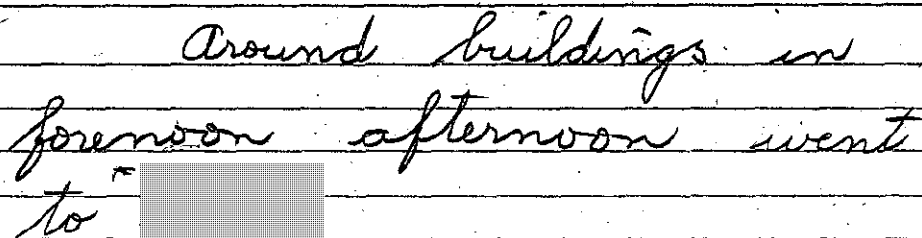 Around buildings in
forenoon afternoon went
to